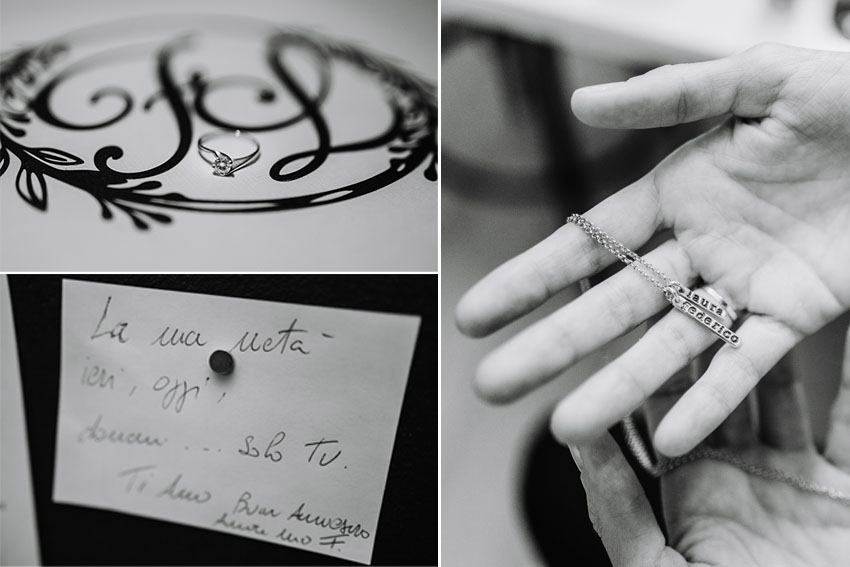 F & L
La mia metà
ieri, oggi,
domani ... solo Tu.
Ti Amo Buon Anniversario
Amore mio F.
laura
federico